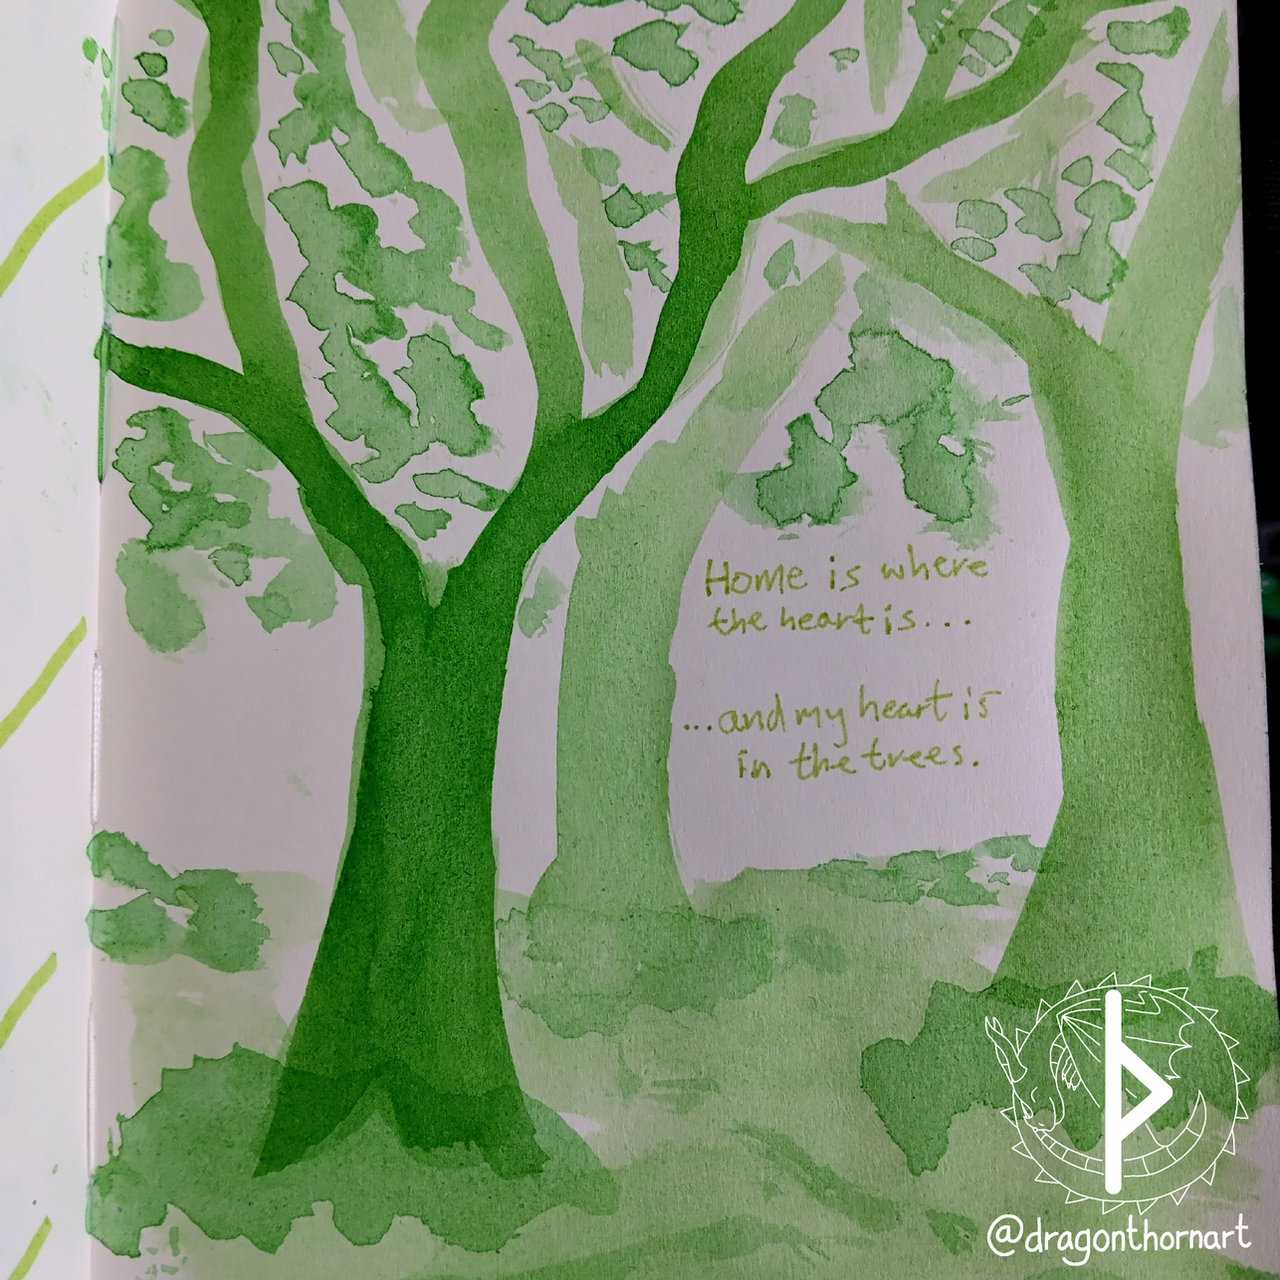 Home is where
the heart is...
...and my heart is
in the trees.
@dragonthornart